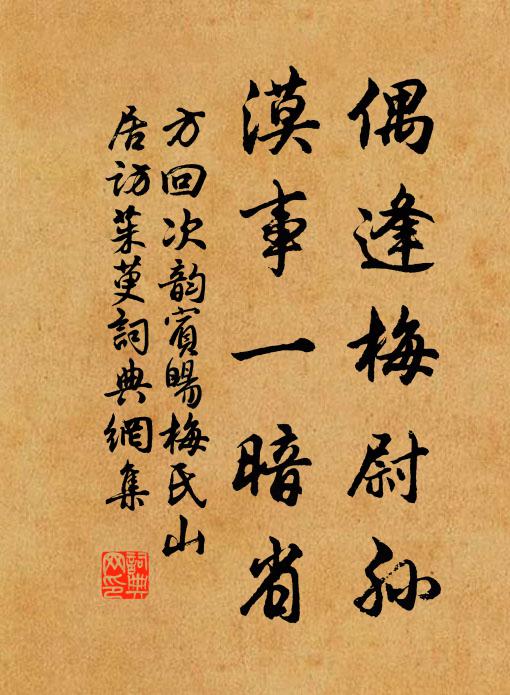 偶逢梅尉孙
漠事一暗省
方回次韵宾旸梅氏山
居访茱萸词典網集
詞典
网印